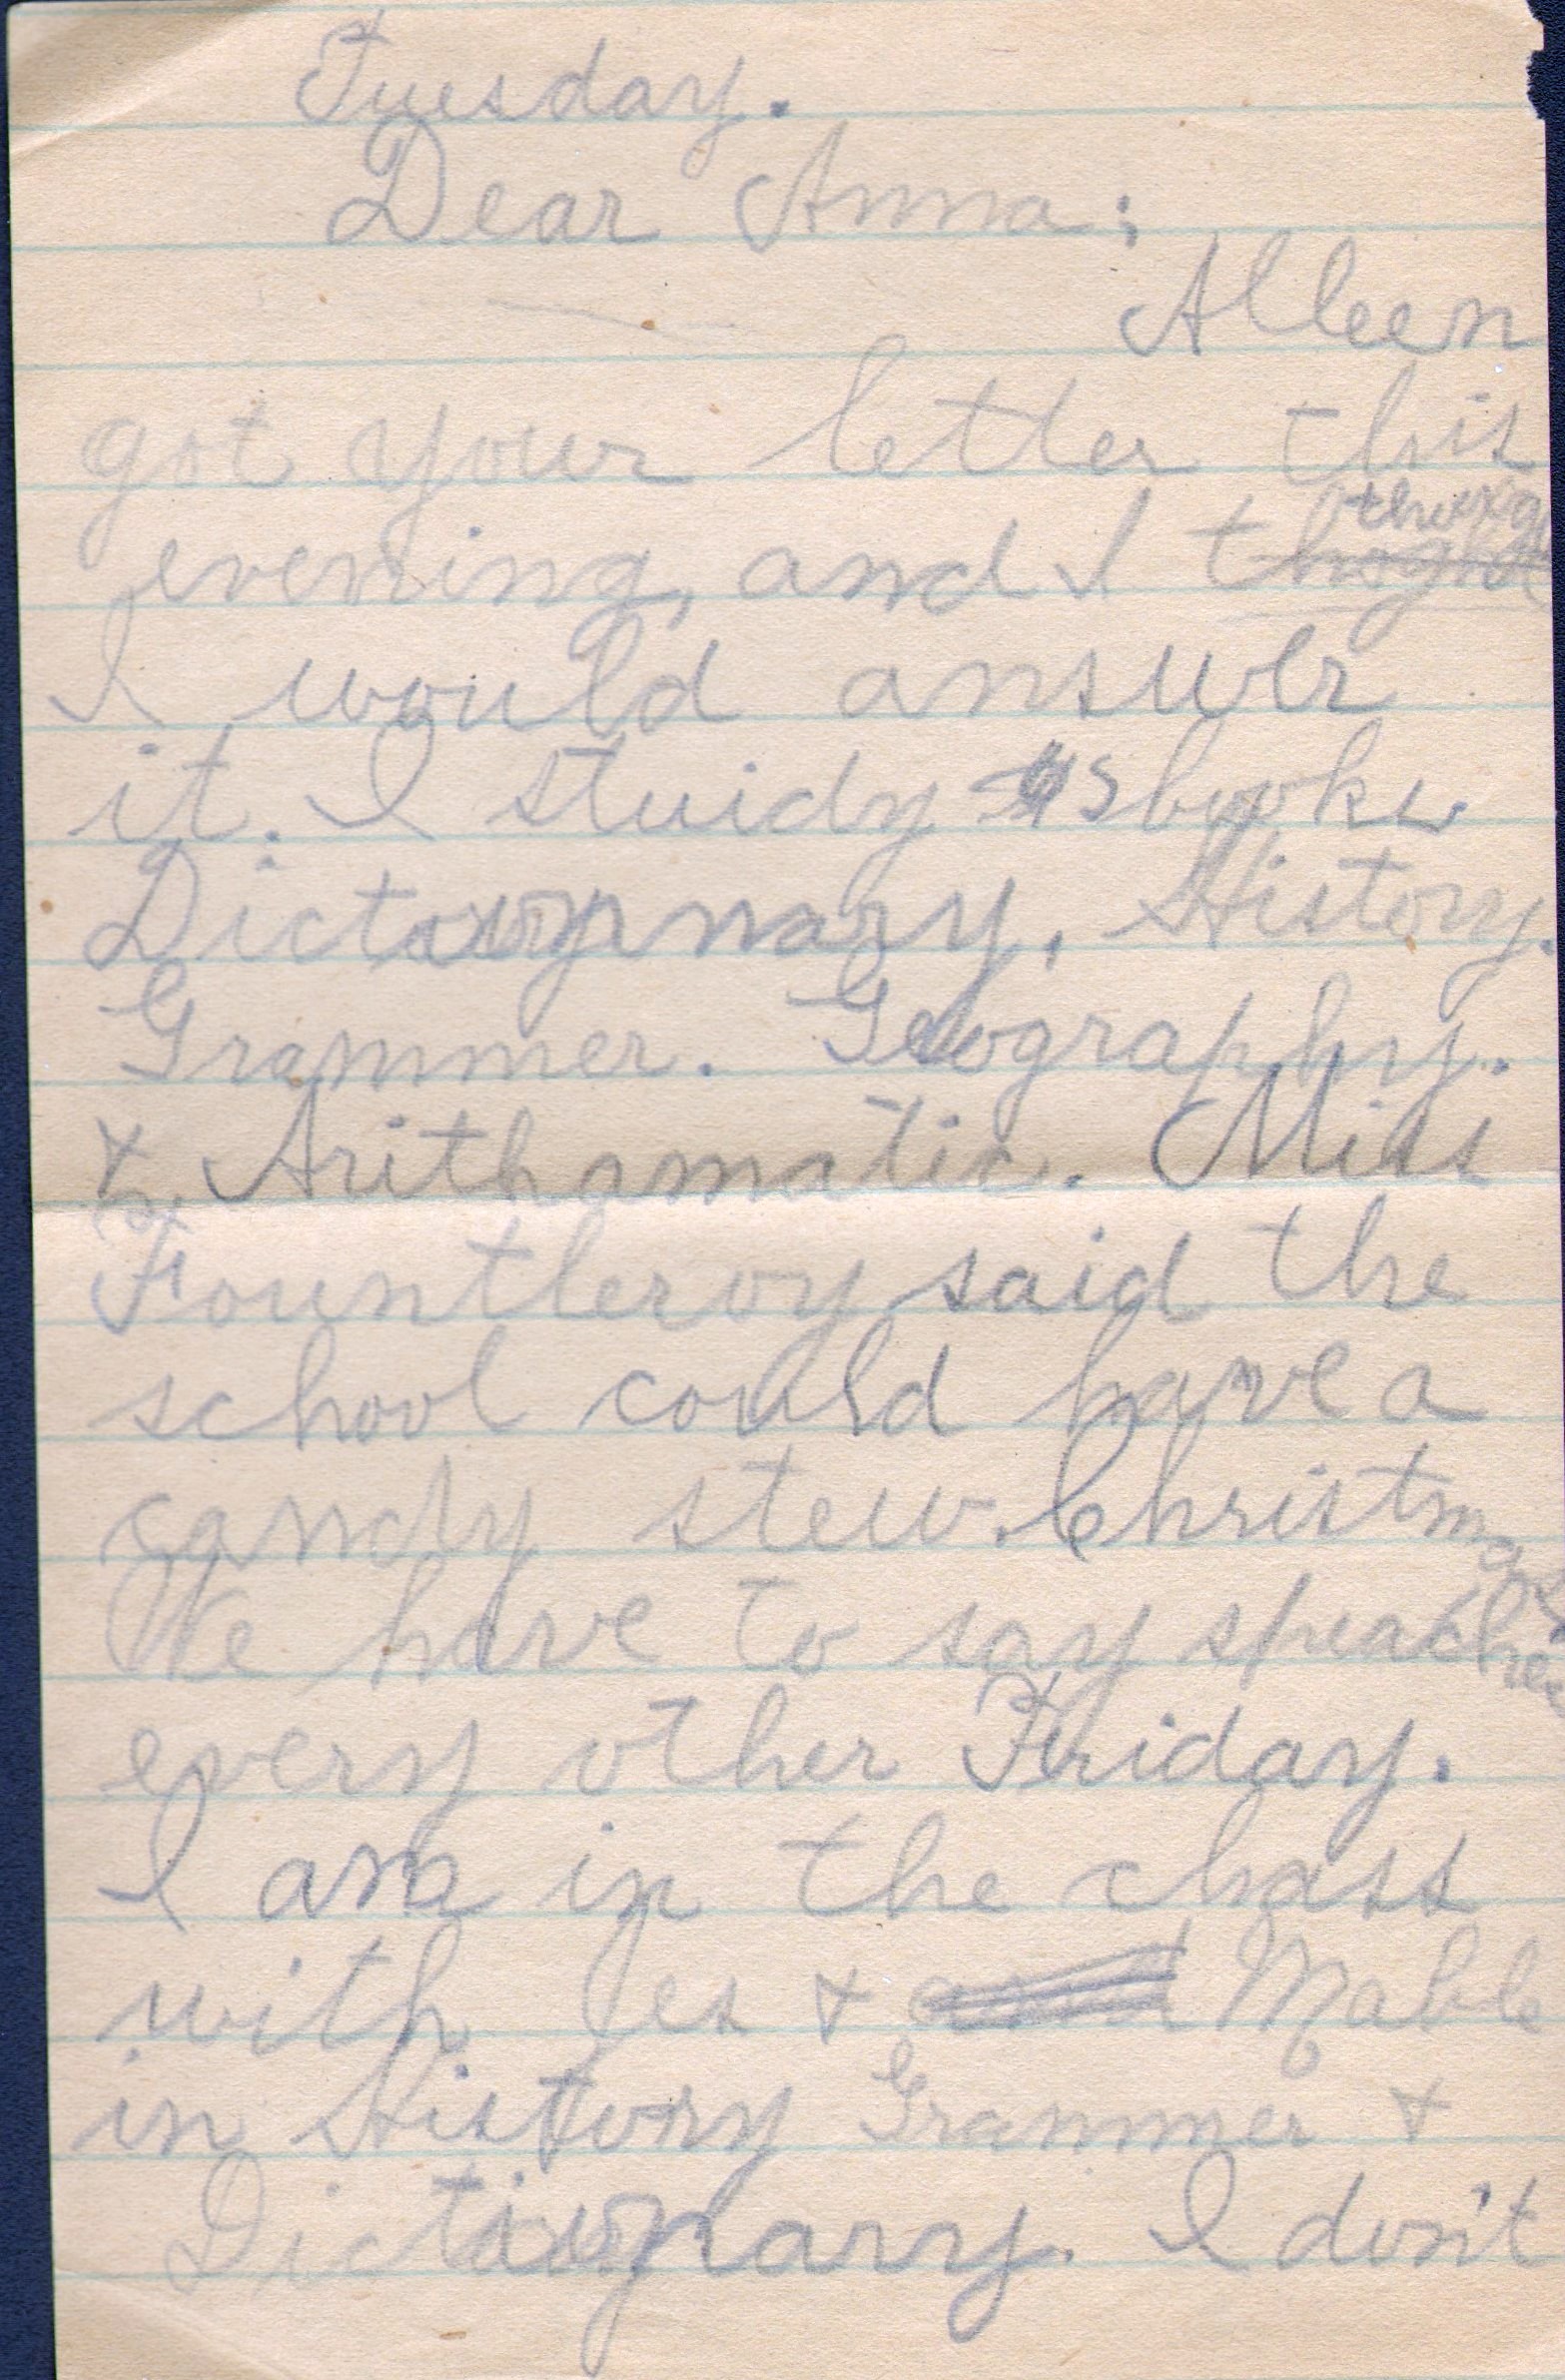 Tuesday.
Dear Anna:
Alleen
got your letter this
evening, and I thoght
I would answer
it. I stuidy 5 books
Dictionary, History.
Grammer. Geography.
& Arithamatic. Miss
Fountleroy said the
school could have a
candy stew. Christmas
We have to say speaches
every other Friday.
I am in the class
with Jes & and Mable
in History Grammer &
Dictionary. I don't